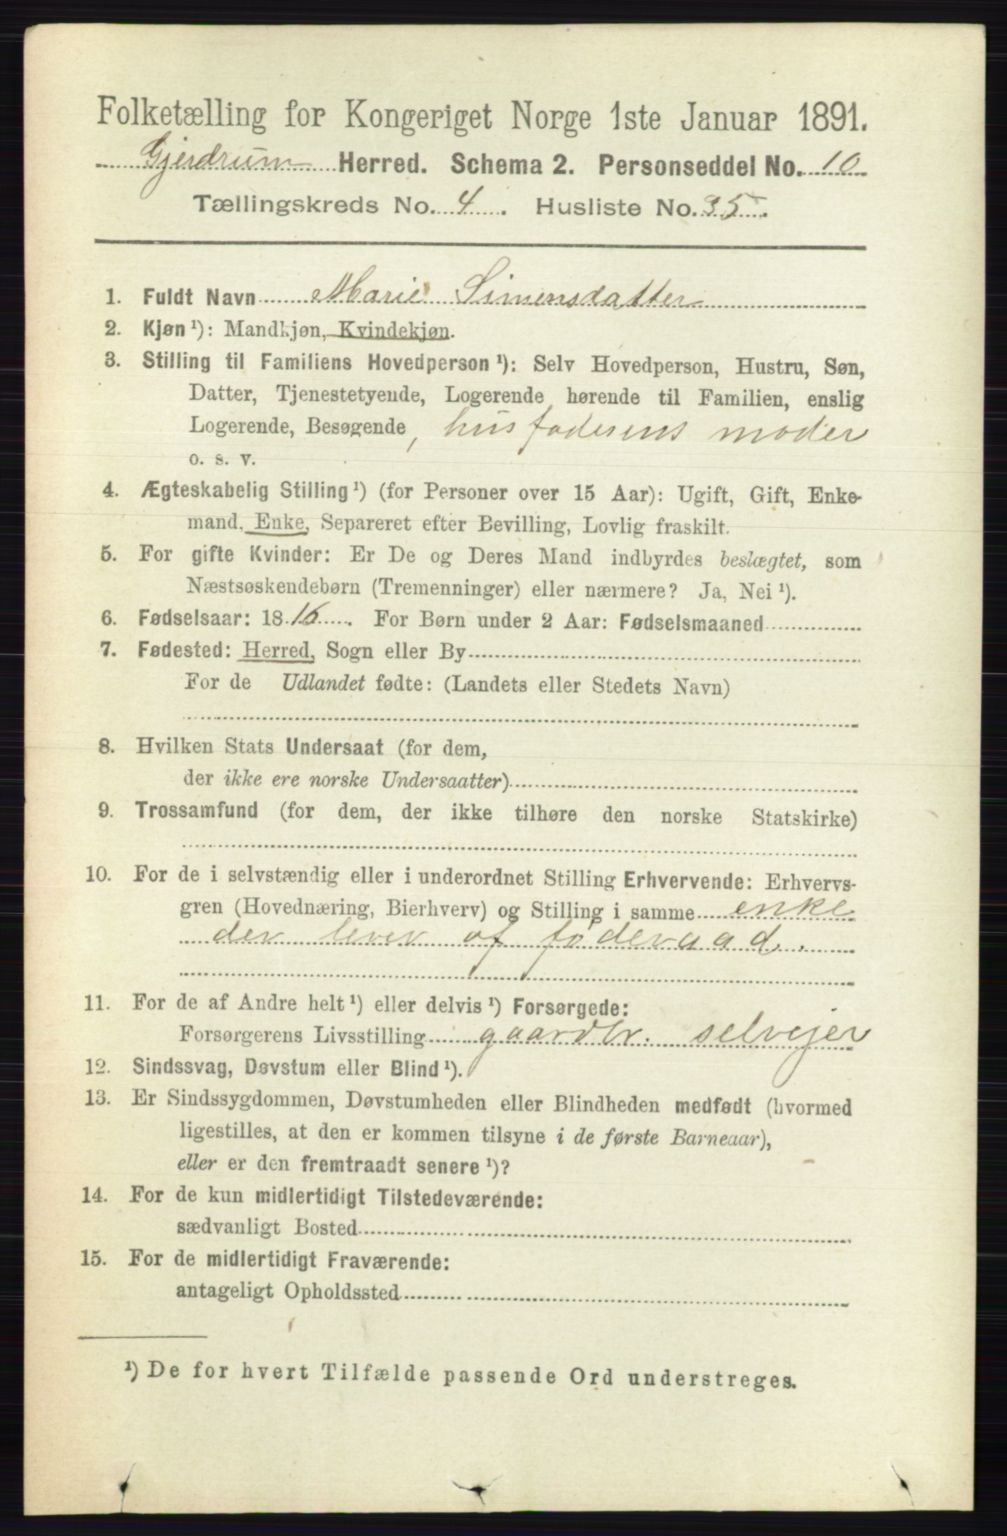 Folketælling for Kongeriget Norge 1ste Januar 1891.
Gjerdrum Herred. Schema 2. Personseddel No. 10
Tællingskreds No. 4. Husliste No. 35.
1. Fuldt Navn Marie Simensdatter
2. Kjøn¹): Mandkjøn, Kvindekjøn.
3. Stilling til Familiens Hovedperson¹): Selv Hovedperson, Hustru, Søn,
Datter, Tjenestetyende, Logerende hørende til Familien, enslig
Logerende, Besøgende, husfaderens moder
o. s. v.
4. Ægteskabelig Stilling¹) (for Personer over 15 Aar): Ugift, Gift, Enke-
mand, Enke, Separeret efter Bevilling, Lovlig fraskilt.
5. For gifte Kvinder: Er De og Deres Mand indbyrdes beslægtet, som
Næstsøskendebørn (Tremenninger) eller nærmere? Ja, Nei¹).
6. Fødselsaar: 1816. For Børn under 2 Aar: Fødselsmaaned
7. Fødested: Herred, Sogn eller By
For de Udlandet fødte: (Landets eller Stedets Navn)
8. Hvilken Stats Undersaat (for dem,
der ikke ere norske Undersaatter)
9. Trossamfund (for dem, der ikke tilhøre den norske Statskirke)
10. For de i selvstændig eller i underordnet Stilling Erhvervende: Erhvervs-
gren (Hovednæring, Bierhverv) og Stilling i samme enke
der lever af føderaad.
11. For de af Andre helt¹) eller delvis¹) Forsørgede:
Forsørgerens Livsstilling gaardbr. selvejer
12. Sindssvag, Døvstum eller Blind¹).
13. Er Sindssygdommen, Døvstumheden eller Blindheden medfødt (hvormed
ligestilles, at den er kommen tilsyne i de første Barneaar),
eller er den fremtraadt senere¹)?
14. For de kun midlertidigt Tilstedeværende:
sædvanligt Bosted
15. For de midlertidigt Fraværende:
antageligt Opholdssted
¹) De for hvert Tilfælde passende Ord understreges.